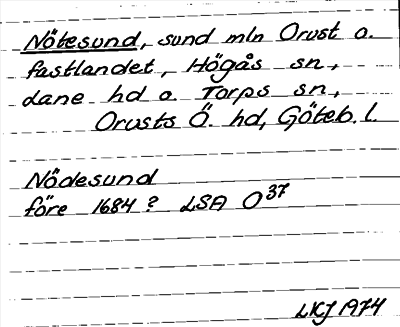 Nötesund, sund mln Orust o.
fastlandet, Högås sn,
Lane hd o. Torps sn,
Orusts Ö. hd, Göteb. l.
Nödesund
före 1684? LSA O37
LKJ 1974